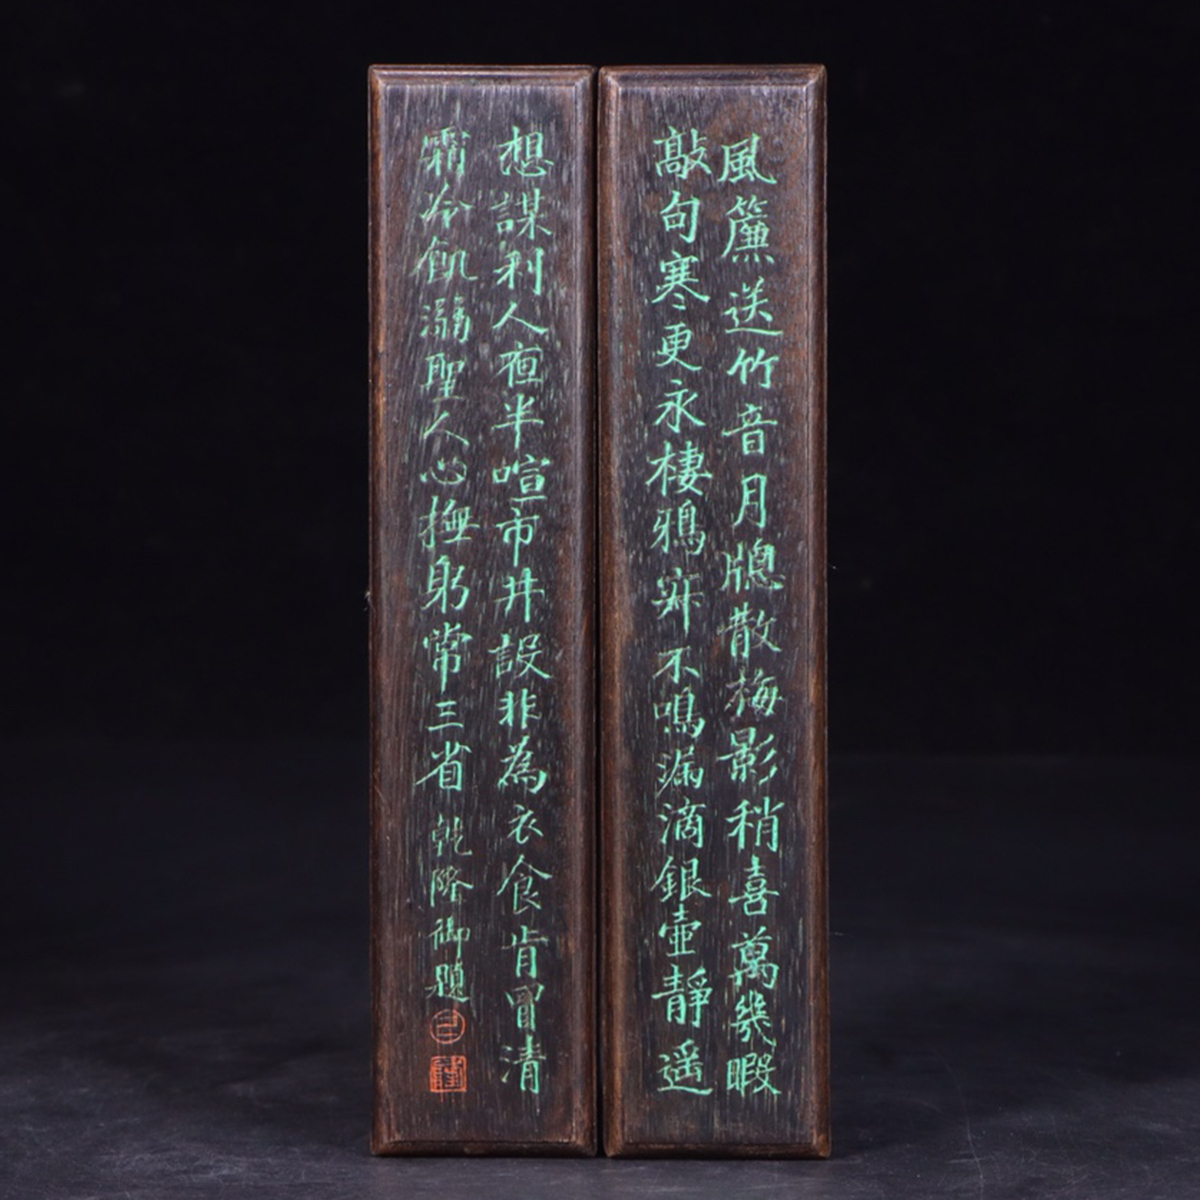 風簾送竹音月牕散梅影稍喜萬幾暇
敲句寒更永棲鴉寂不鳴漏滴銀壺靜遥
想謀利人夜半喧市井設非為衣食肯冒清
霜冷飢溺聖人心撫躬常三省
乾隆御題